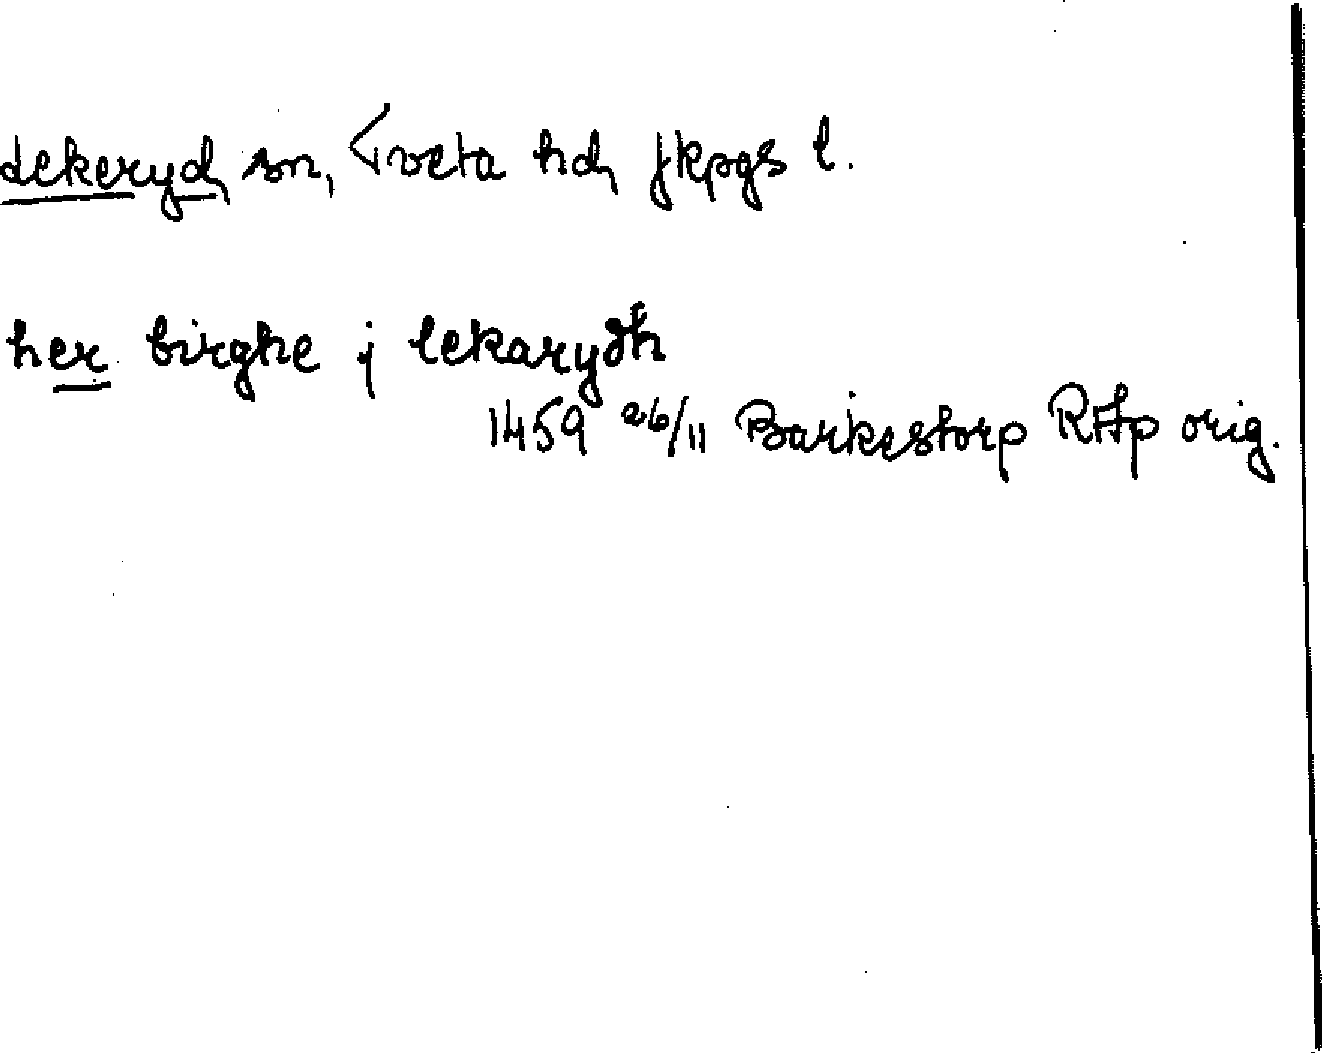 Lekeryd sn, Tveta hd, Jkpgs l.
her birghe j lekarydh
1459 26/11 Barkestorp RAp orig.